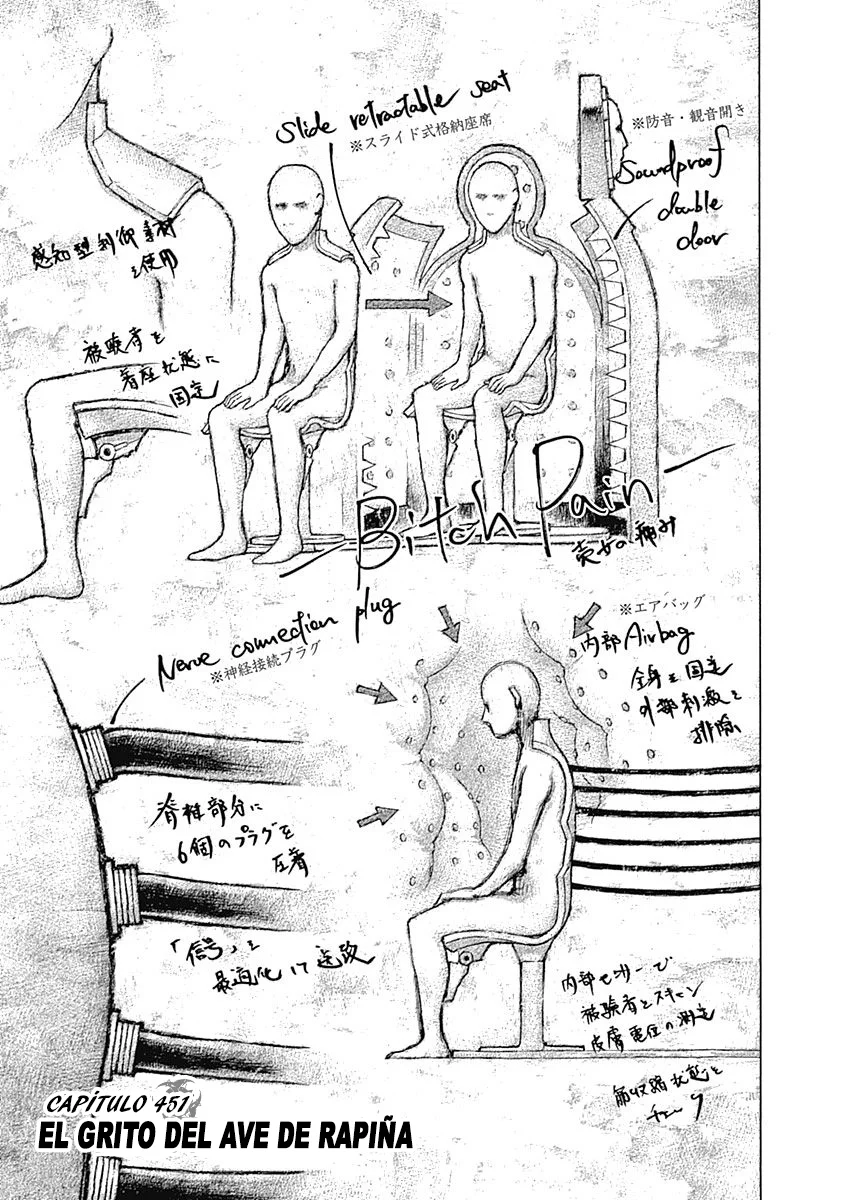 slide retractable seat
※スライド式格納座席
※防音・観音開き
Soundproof
double
door
感知型制御素材
を使用
被験者を
着座状態に
固定
Bitch Pain
売女の痛み
Nerve connection plug
※神経接続プラグ
※エアバッグ
内部 Airbag
全身を固定
外部刺激を
排除
脊椎部分に
6個のプラグを
圧着
「信号」を
最適化して送致
内部センサーで
被験者をスキャン
皮膚電位の測定
筋収縮状態を
CAPÍTULO 451
EL GRITO DEL AVE DE RAPIÑA